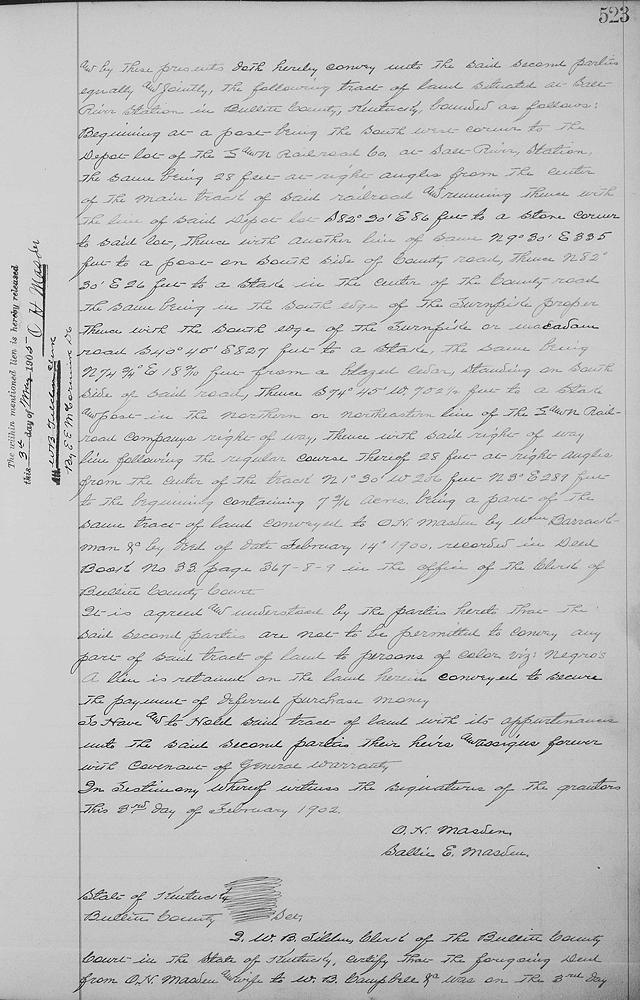 523
and by these presents doth hereby convey unto the said second parties
equally and jointly, the following tract of land situated at Salt
River Station in Bullitt County, Kentucky, bounded as follows:
Beginning at a post being the South west corner to the
Depot lot of the L and N Railroad Co. at Salt River, Station,
the same being 28 feet at right angles from the center
of the main track of said railroad and running thence with
the line of said Depot lot S82° 30' E 86 feet to a stone corner
to said lot, thence with another line of same N 9° 30' E 335
feet to a post on South side of County road, thence N 82°
30' E 26 feet to a stake in the center of the County road
the same being in the South edge of the Turnpike proper
thence with the South edge of the Turnpike or macadam
road S 40° 45' E 827 feet to a stake, the same being
N 74 ¾° E 18 feet from a blazed cedar, standing on South
side of said road, thence S 74° 45' W. 902 feet to a stake
and post in the northern or northeastern line of the L and N Rail-
road Companys right of way, thence with said right of way
line following the regular course thereof 28 feet at right angles
from the center of the track N 1° 30' W 206 feet N 3° E 287 feet
to the beginning containing 7 acres, being a part of the
same tract of land conveyed to O.H. Masden by Wm Barrack-
man &c by deed of date February 14" 1900, recorded in Deed
Book No 33 page 367-8-9 in the office of the Clerk of
Bullitt County Court
It is agreed and understood by the parties hereto that the
said second parties are not to be permitted to convey any
part of said tract of land to persons of color viz: Negro's
A lien is retained on the land herein conveyed to secure
the payment of deferred purchase money
To Have and to Hold said tract of land with its appurtenances
unto the said second parties their heirs and assigns forever
with Covenant of General Warranty
In Testimony whereof witness the signatures of the grantors
this 3rd day of February 1902.
O. H. Masden,
Sallie E. Masden.
State of Kentucky
Bullitt County Sct,
I, W. B. Tilden, Clerk of the Bullitt County
Court in the State of Kentucky, certify that the foregoing Deed
from O.H. Masden and wife to W. B. Campbell &c was on the 3rd day
The within mentioned lien is hereby released
this 3d day of May 1905 O H Masden
W B Tilden Clerk
By E E McCormick DC